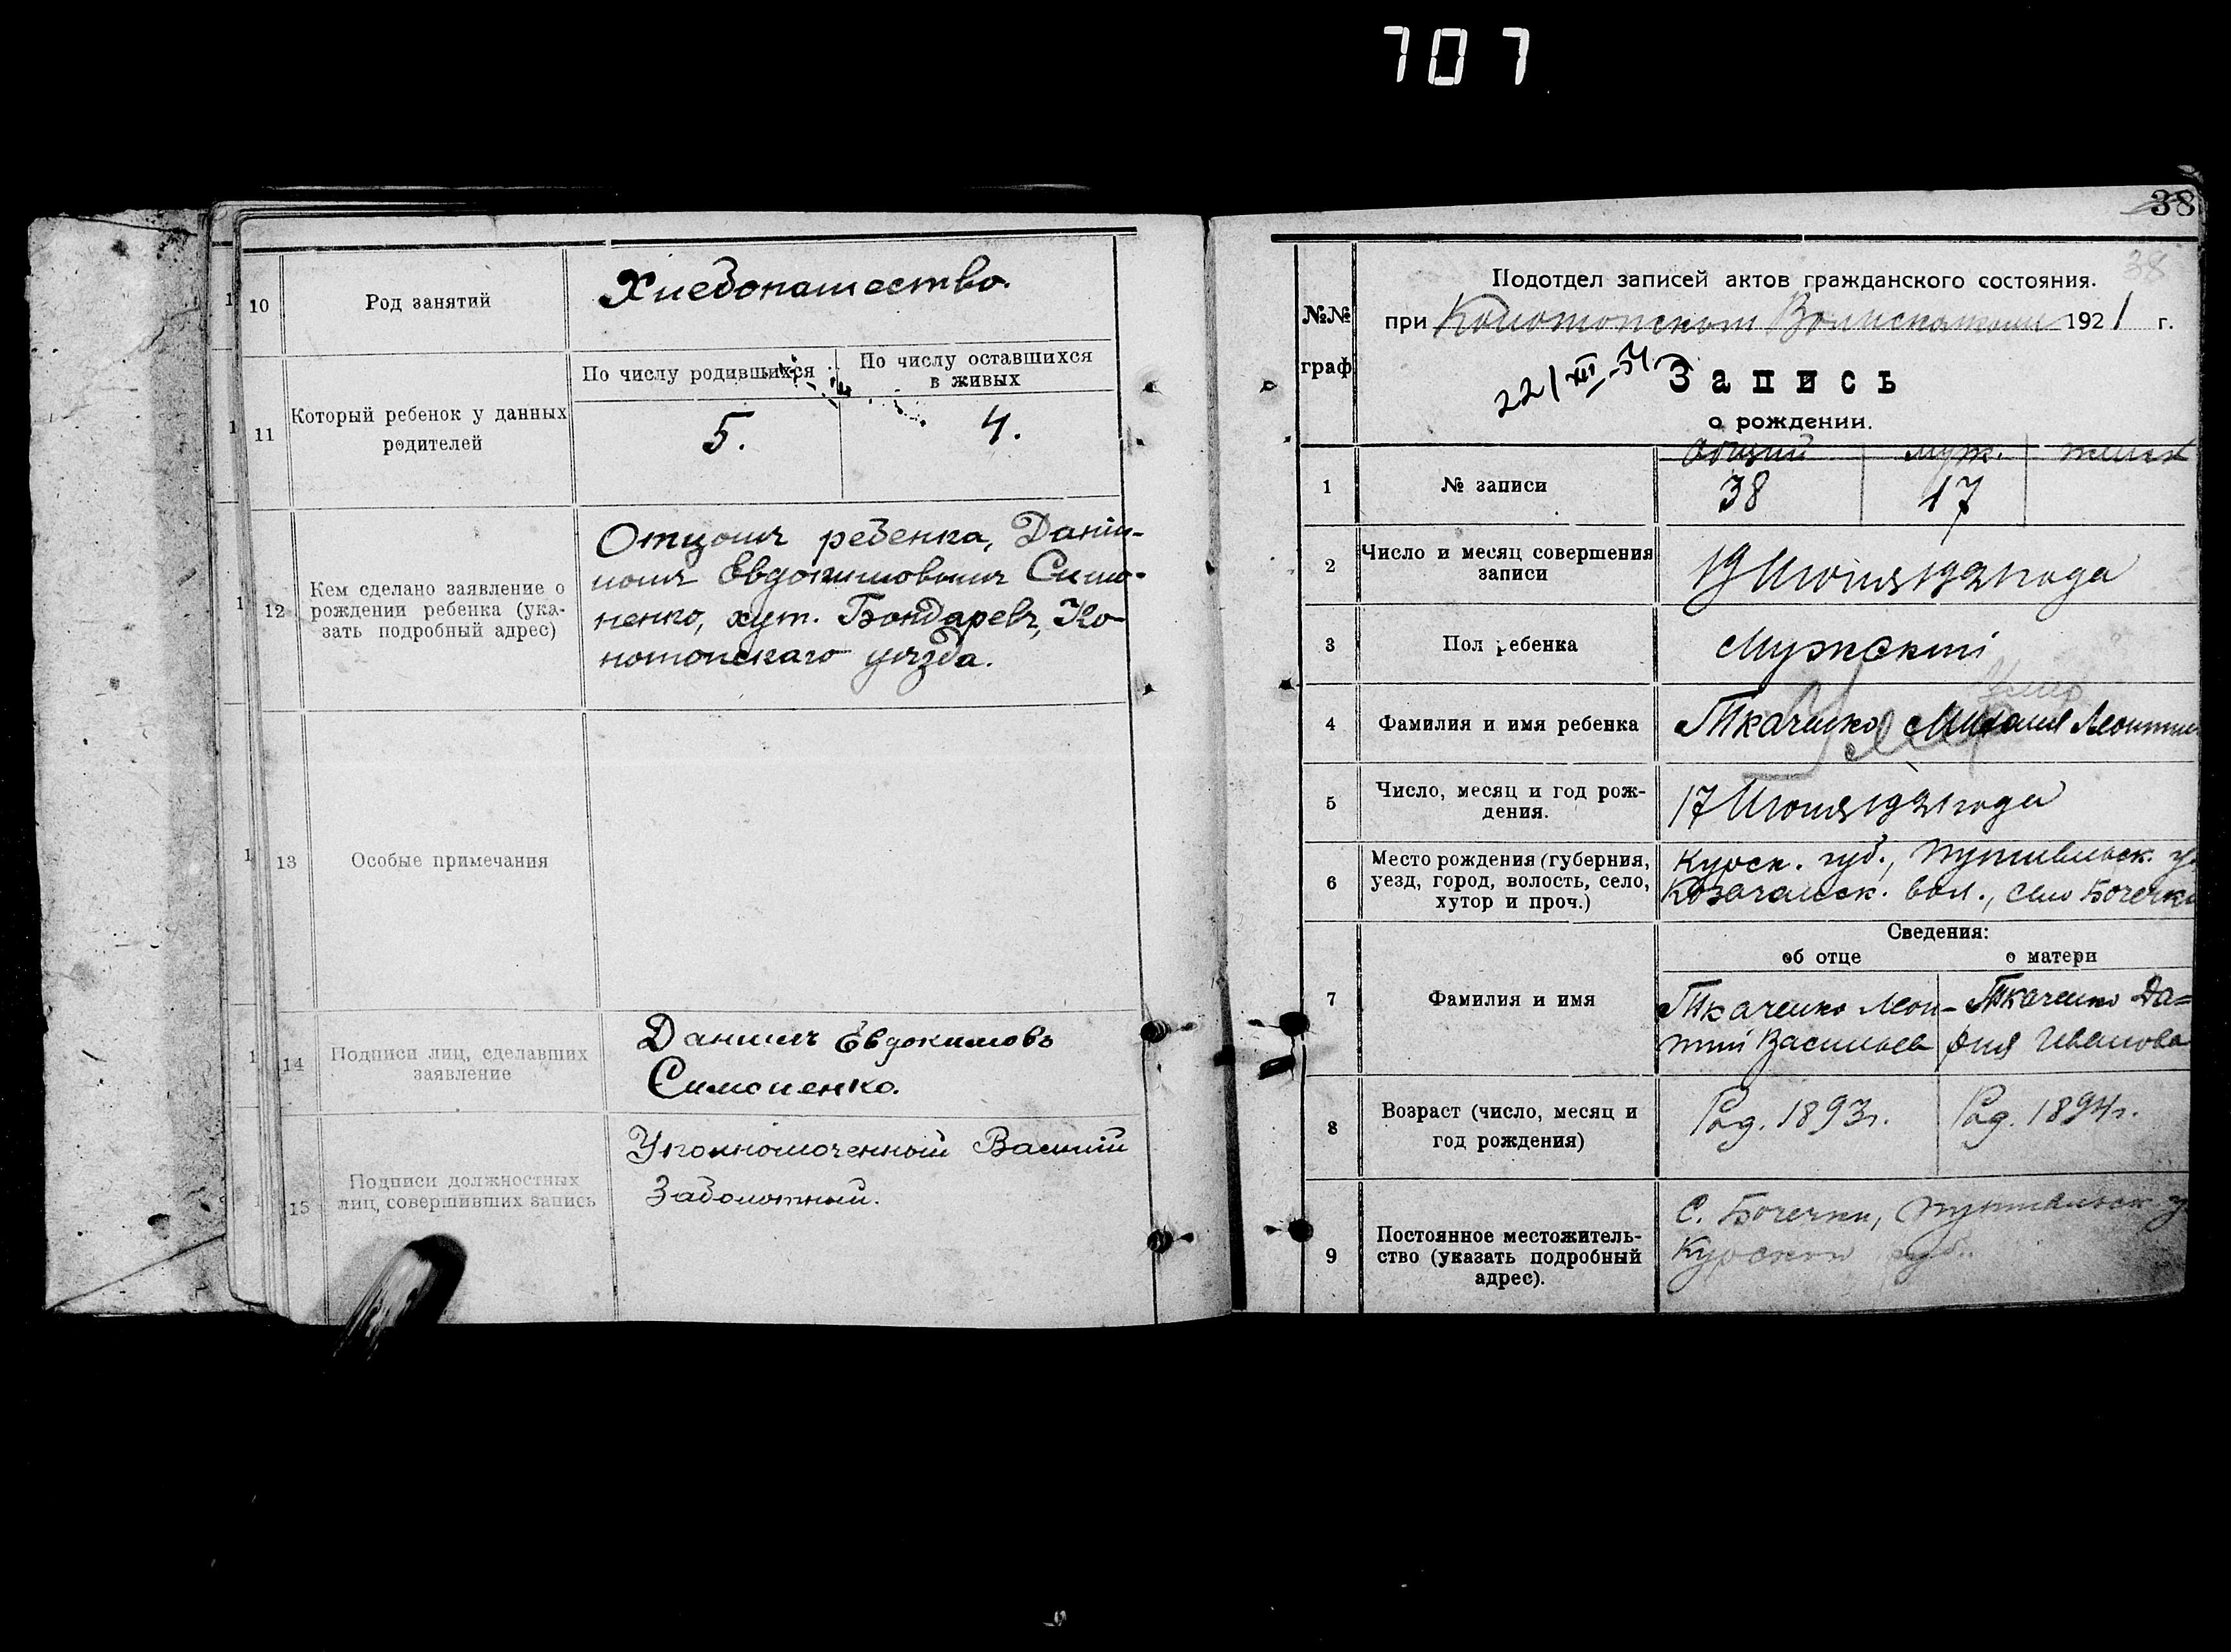 707
10
Род занятий
Хлебопашество.
11
Который ребенок у данных
родителей
По числу родившихся
По числу оставшихся
в живых
5.
4.
12
Кем сделано заявление о
рождении ребенка (ука-
зать подробный адрес)
Отцомъ ребенка, Даніи-
ломъ Евдокимовымъ Симо-
ненко, хут. Бондаревъ, Ко-
нотопскаго уѣзда.
13
Особые примечания
14
Подписи лиц, сделавших
заявление
Даниилъ Евдокимовъ
Симоненко.
15
Подписи должностных
лиц, совершивших запись
Уполномоченный Василій
Заболотный.
38
38
№№
граф
Подотдел записей актов гражданского состояния.
при Конотопском 1921 г.
22/XII-54
Запись
о рождении.
1
№ записи
общий
муж.
женск
38
17
2
Число и месяц совершения
записи
19 Июля 1921 года
3
Пол ребенка
Мужской
4
Фамилия и имя ребенка
Ткаченко Михаил Леонтие
Умер
Умер
5
Число, месяц и год рож-
дения.
17 Июля 1921 года
6
Место рождения (губерния,
уезд, город, волость, село,
хутор и проч.)
Курск. губ., Путивльск. у.
Козачанск. вол., село Бочечки
Сведения:
об отце
о матери
7
Фамилия и имя
Ткаченко Леон-
тий Васильев
Ткаченко Да-
рия Иванова
8
Возраст (число, месяц и
год рождения)
Род. 1893г.
Род. 1894г.
9
Постоянное местожитель-
ство (указать подробный
адрес).
С. Бочечки, Путивльск. у
Курской губ.